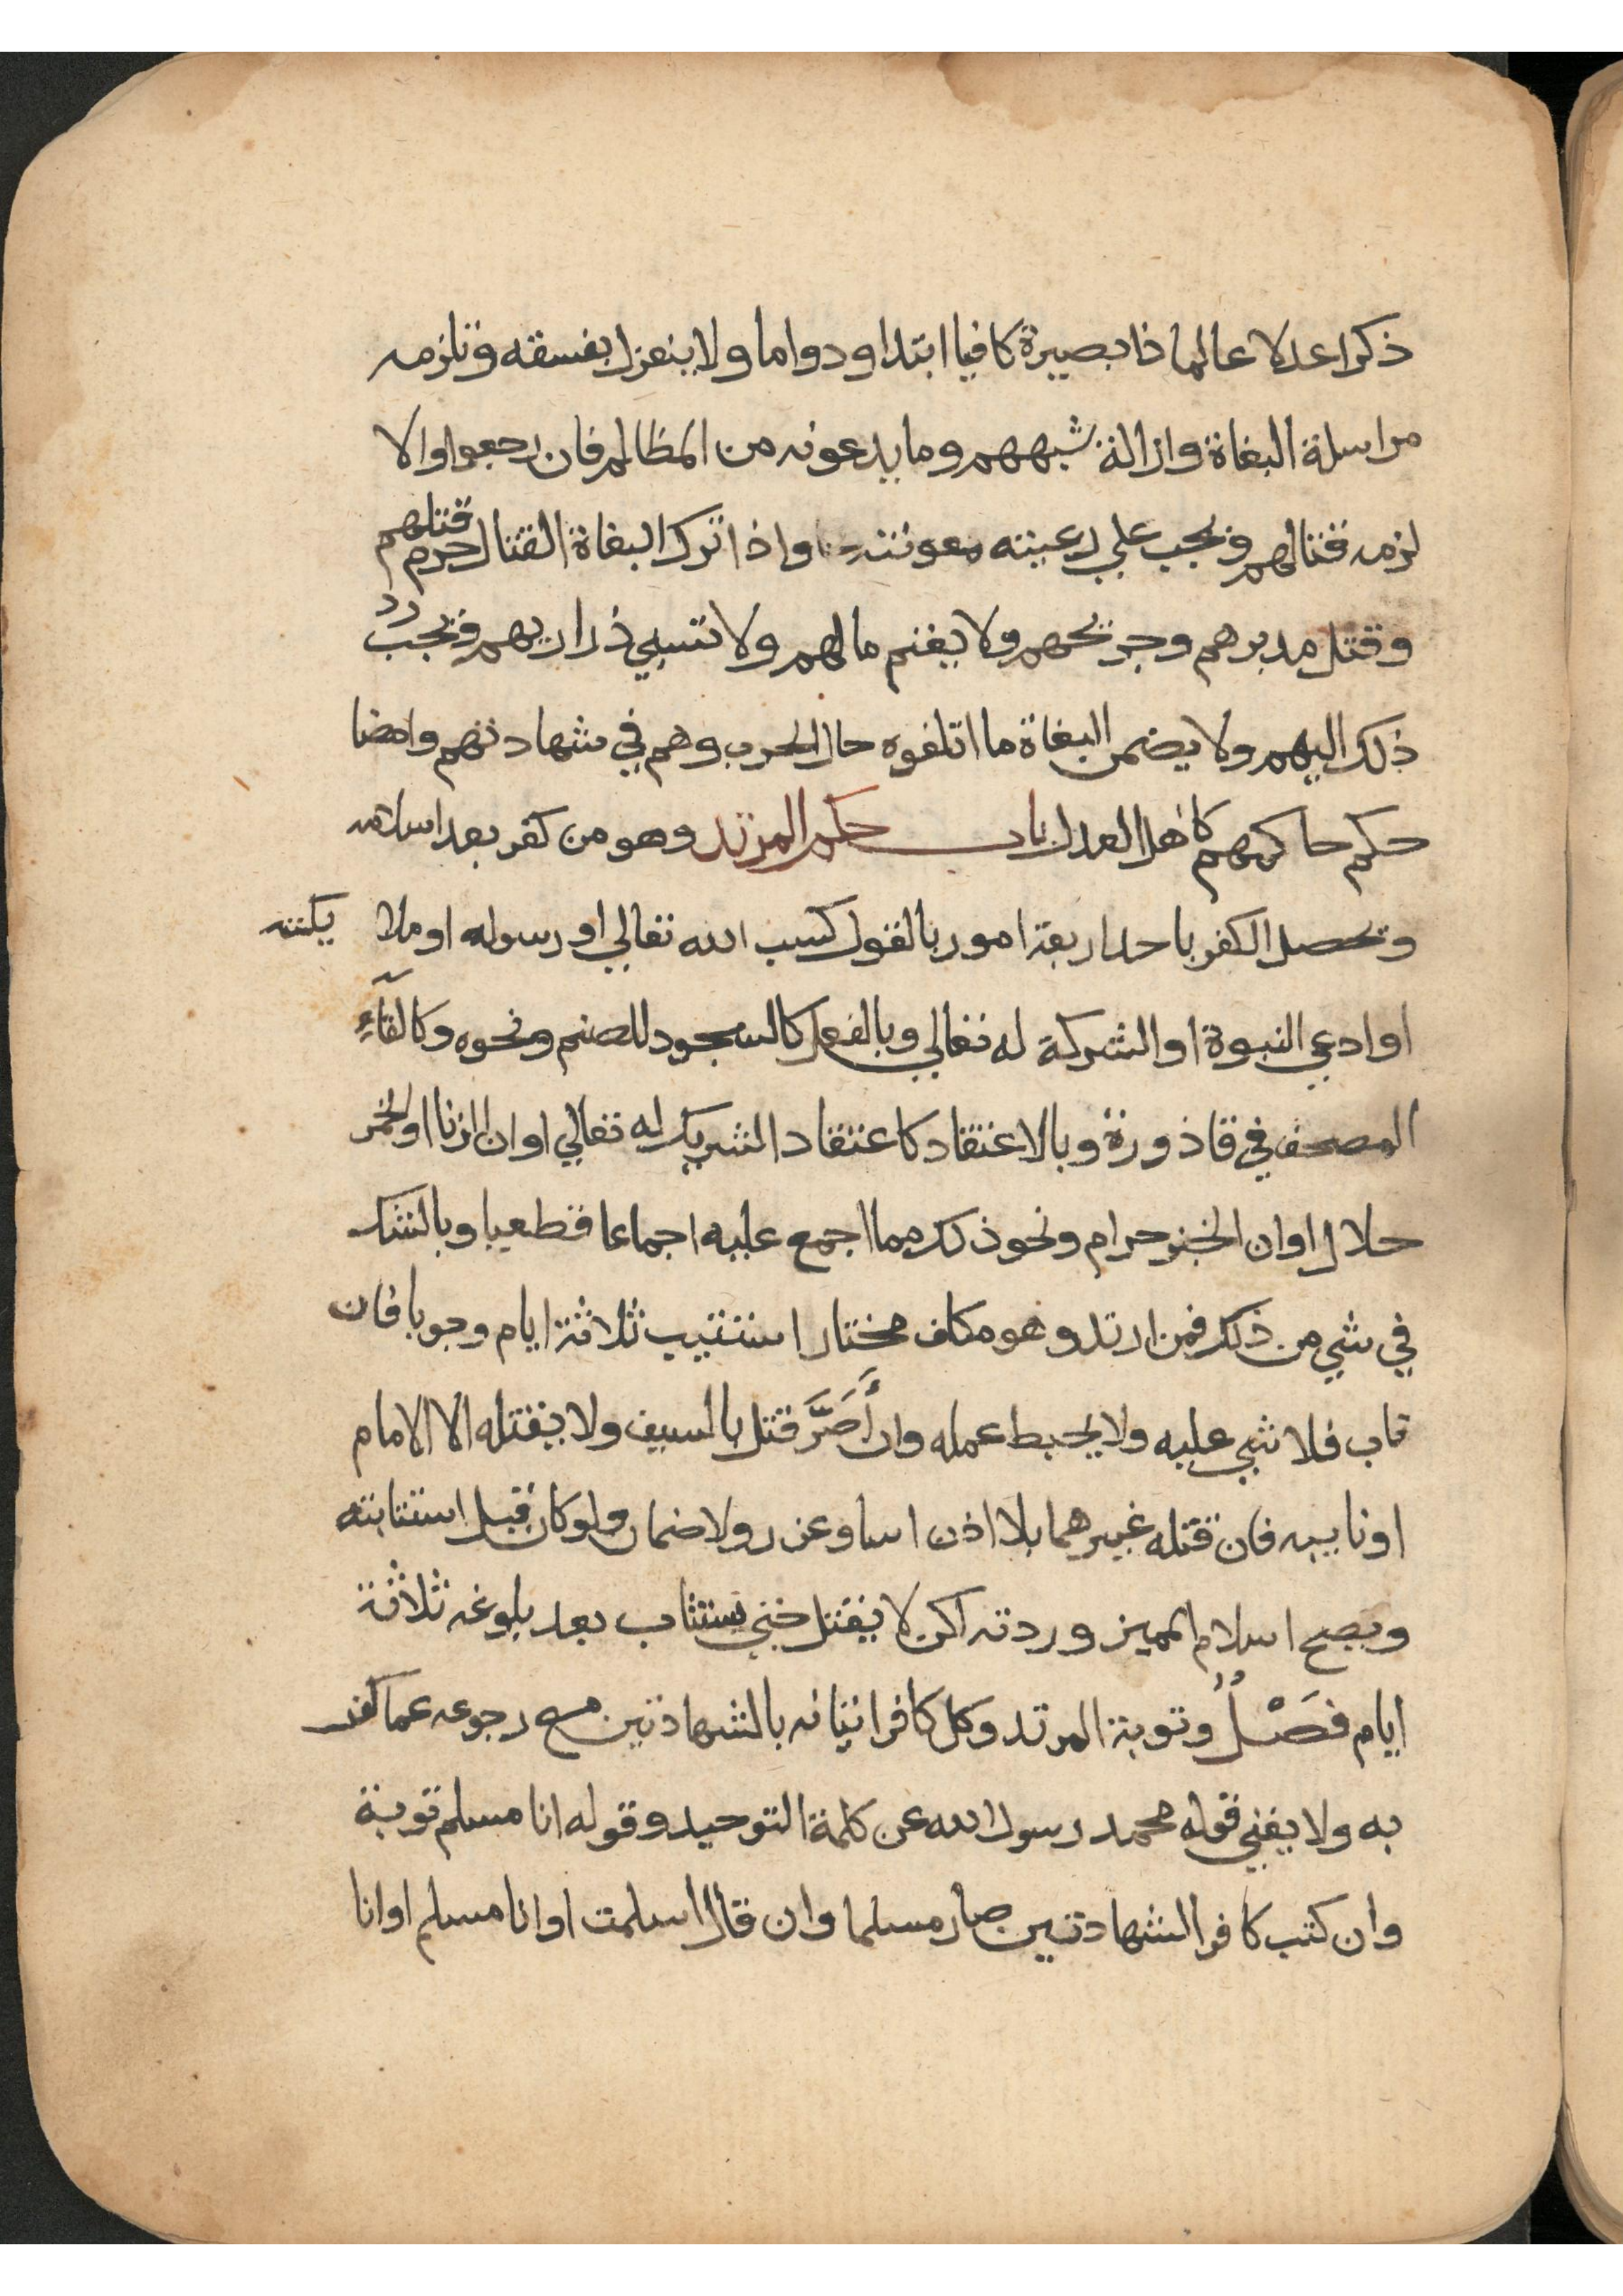 ذكرا عدلا عالما ذا بصيرة كافيا ابتدا ودواما ولا ينعزل بفسقه وتلزمه
مراسلة البغاة وازالة شبههم وما يدعونه من المظالم فان رجعوا والا
لزمه قتالهم ويجب علي رعيته معونته واذا ترك البغاة القتال حرم قتلهم
وقتل مدبرهم وجريحهم ولا يغنم مالهم ولا تسبي ذراريهم ويجب رد
ذلك اليهم ولا يضمن البغاة ما اتلفوه حال الحرب وهم في شهادتهم وامضا
حكم حاكمهم كاهل العدل باب حكم المرتد وهو من كفر بعد اسلامه
ويحصل الكفر باحد اربعة امور بالقول كسب الله تعالي او رسوله او ملا يكته
او ادعي النبوة او الشركة له تعالي وبالفعل كالسجود للصنم ونحوه وكالقآء
المصحف في قاذورة وبالاعتقاد كاعتقاد الشريك له تعالي او ان الزنا او الخمر
حلال او ان الخبز حرام ونحو ذلك مما اجمع عليه اجماعا قطعيا وبالشك
في شي من ذلك فمن ارتد وهو مكلف مختار استتيب ثلاثة ايام وجوبا فان
تاب فلا شي عليه ولا يحبط عمله وان أَصَرَّ قتل بالسيف ولا يقتله الا الامام
او نايبه فان قتله غيرهما بلا اذن اسا وعزر ولا ضمان ولو كان قبل استتابته
ويصح اسلام المميز وردته لكن لا يقتل حتي يستتاب بعد بلوغه ثلاثة
ايام فَصْلٌ وتوبة المرتد وكل كافر اتيانه بالشهادتين مع رجوعه عما كفر
به ولا يغني قوله محمد رسول الله عن كلمة التوحيد وقوله انا مسلم توبة
وان كتب كافر الشهادتين صار مسلما وان قال اسلمت او انا مسلم او انا